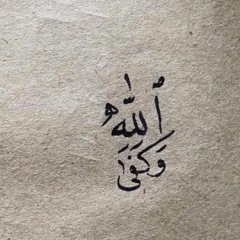 ٱللَّهُ
وَكَفَىٰ